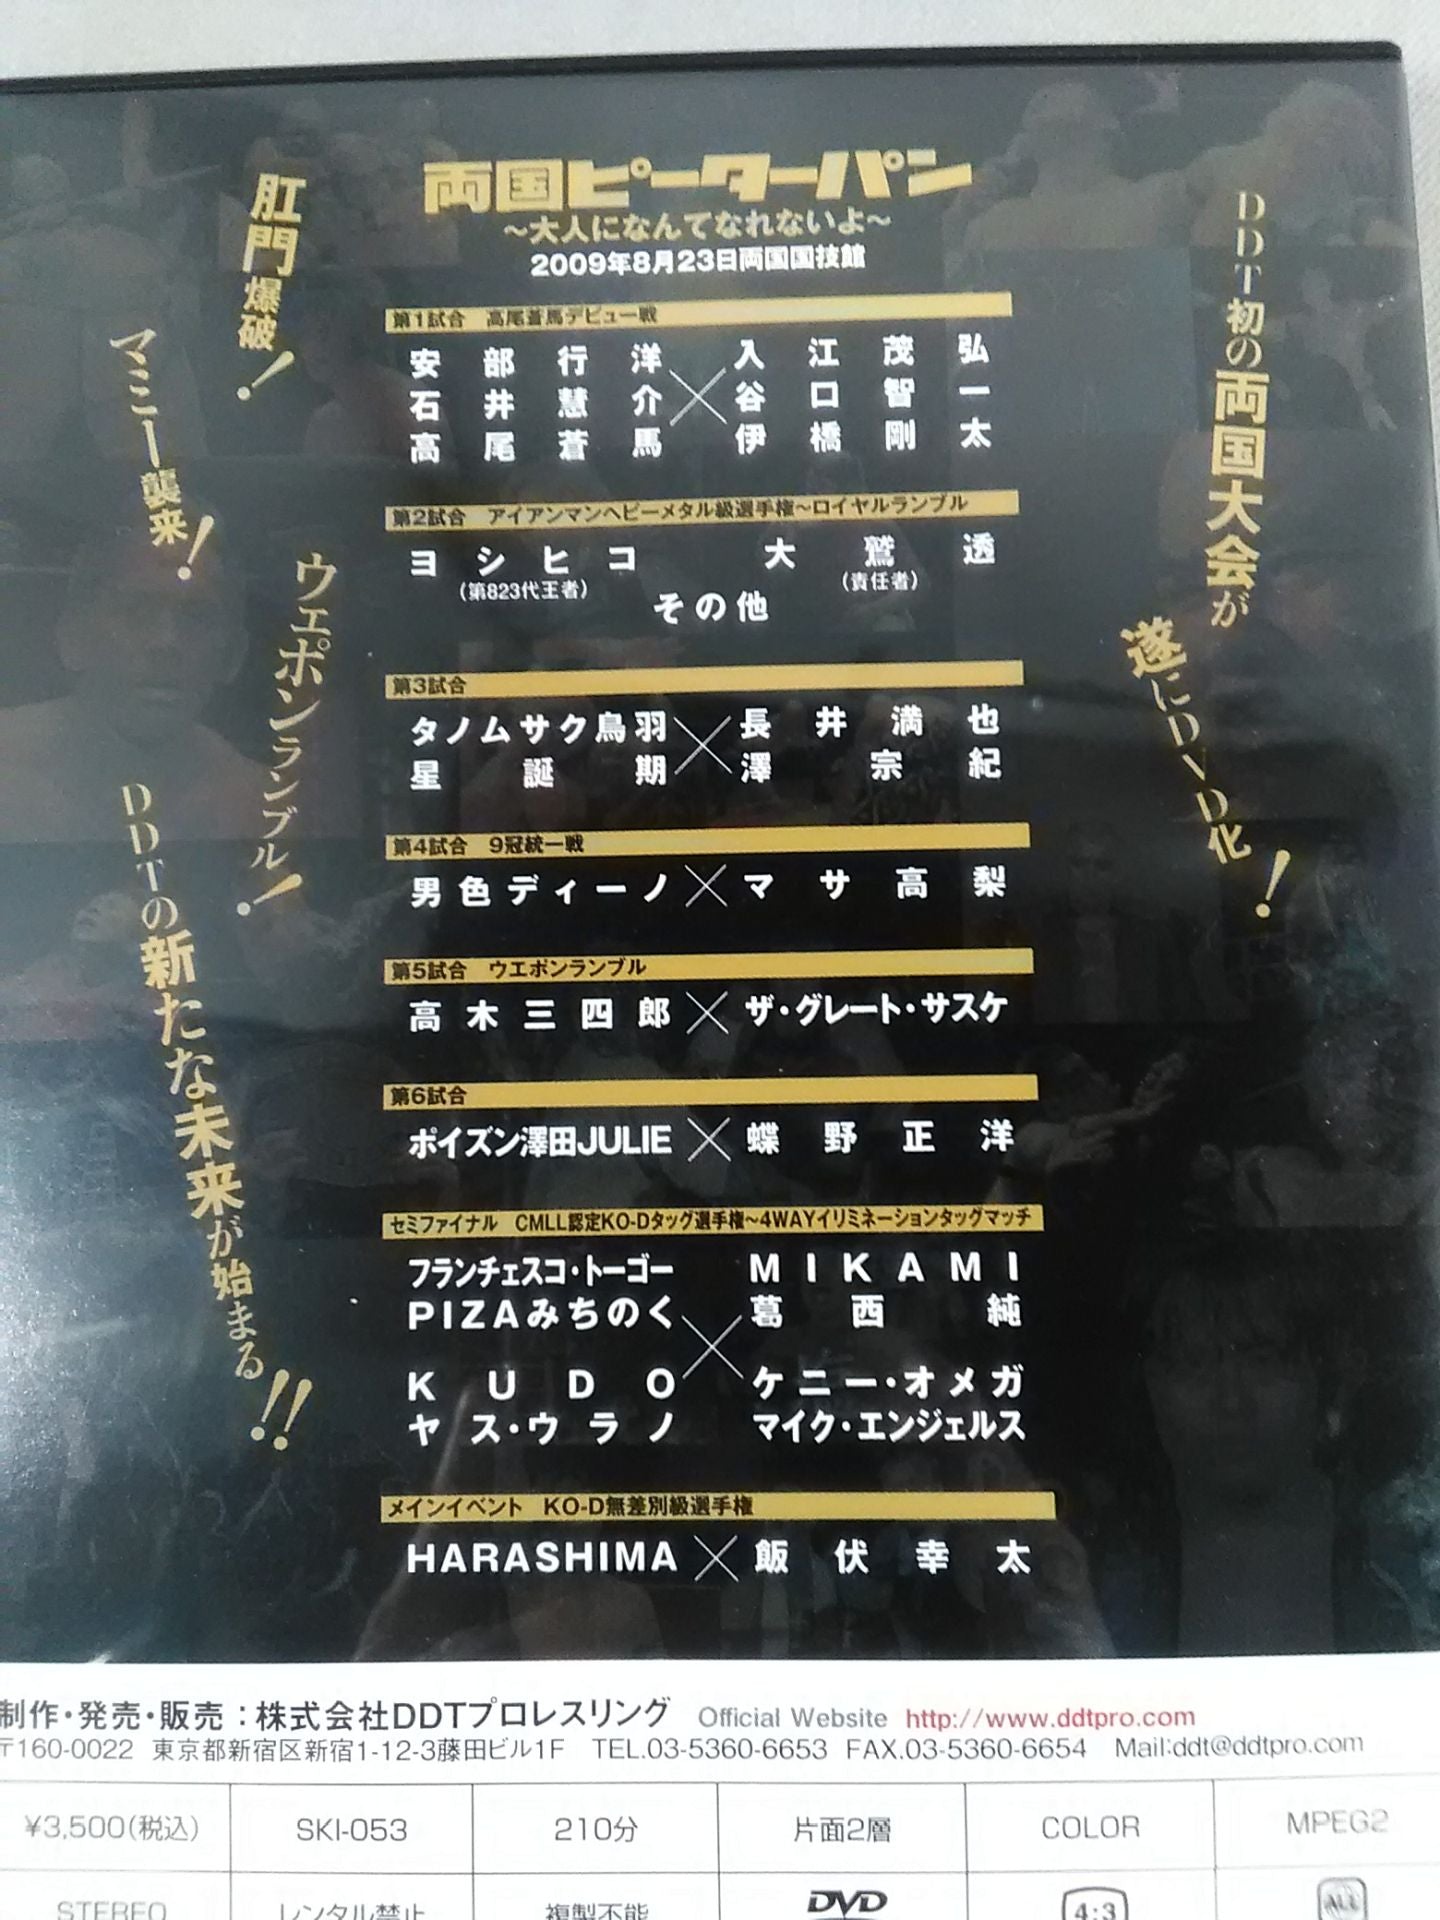 両国ピーターパン
～大人になんてなれないよ～
2009年8月23日両国国技館
DDT初の両国大会が
遂にDVD化!
肛門爆破!
マミー襲来!
ウエポンランブル!
DDTの新たな未来が始まる!!
第1試合 高尾蒼馬デビュー戦
安部行洋 × 入江茂弘
石井慧介 谷口智一
高尾蒼馬 伊橋剛太
第2試合 アイアンマンヘビーメタル級選手権～ロイヤルランブル
ヨシヒコ 大鷲透
(第823代王者) (責任者)
その他
第3試合
タノムサク鳥羽 × 長井満也
星誕期 澤宗紀
第4試合 9冠統一戦
男色ディーノ × マサ高梨
第5試合 ウエポンランブル
高木三四郎 × ザ・グレート・サスケ
第6試合
ポイズン澤田JULIE × 蝶野正洋
セミファイナル CMLL認定KO-Dタッグ選手権～4WAYイリミネーションタッグマッチ
フランチェスコ・トーゴー MIKAMI
PIZAみちのく × 葛西純
KUDO ケニー・オメガ
ヤス・ウラノ マイク・エンジェルス
メインイベント KO-D無差別級選手権
HARASHIMA × 飯伏幸太
制作・発売・販売：株式会社DDTプロレスリング Official Website http://www.ddtpro.com
〒160-0022 東京都新宿区新宿1-12-3藤田ビル1F TEL.03-5360-6653 FAX.03-5360-6654 Mail:ddt@ddtpro.com
¥3,500(税込) SKI-053 210分 片面2層 COLOR MPEG2
STEREO レンタル禁止 複製不能 DVD 4:3 ALL